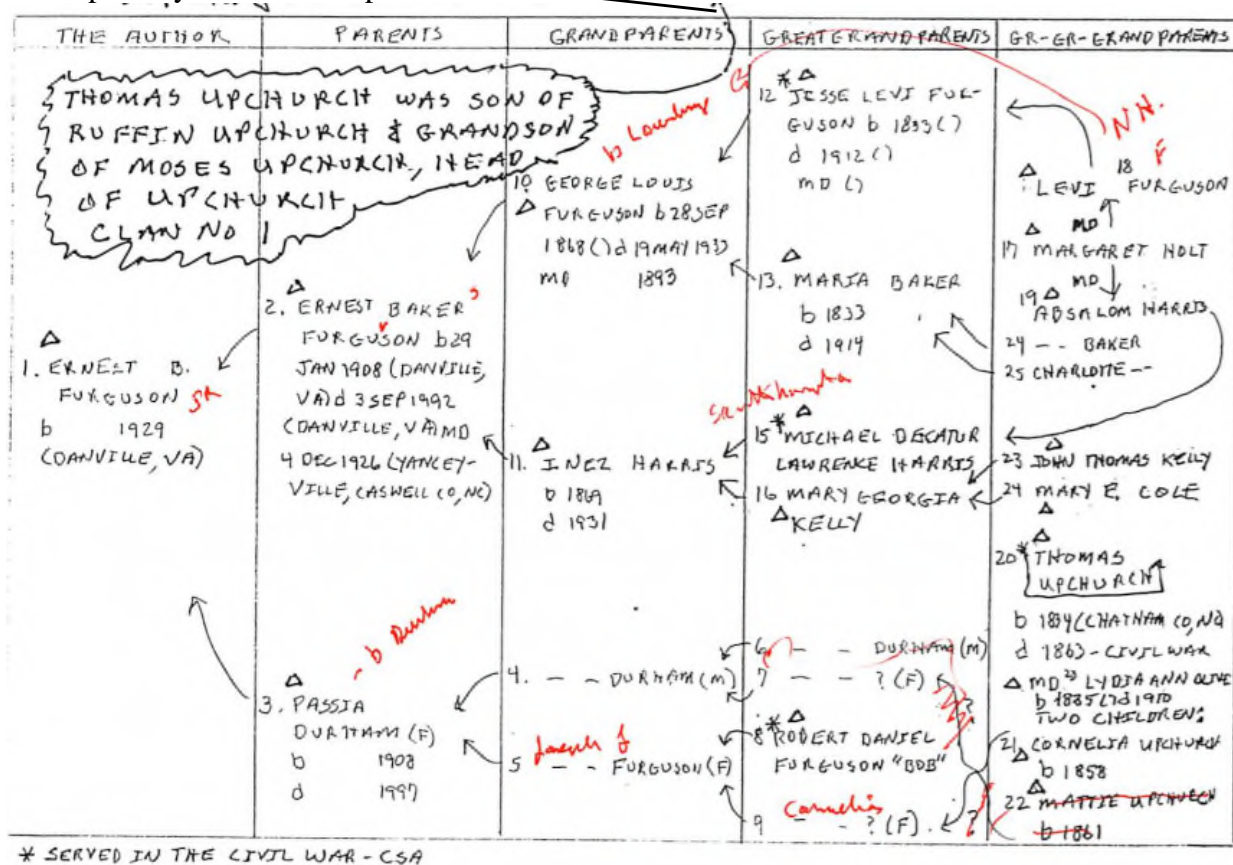 THE AUTHOR
PARENTS
GRANDPARENTS
GREATGRANDPARENTS
GR-GR-GRANDPARENTS
THOMAS UPCHURCH WAS SON OF
RUFFIN UPCHURCH & GRANDSON
OF MOSES UPCHURCH, HEAD
OF UPCHURCH
CLAN NO 1
1. ERNEST B.
FURGUSON SR
b 1929
(DANVILLE, VA)
2. ERNEST BAKER
FURGUSON b29
JAN 1908 (DANVILLE,
VA) d 3 SEP 1992
(DANVILLE, VA) MD
4 DEC 1926 (YANCEY-
VILLE, CASWELL CO, NC)
- b Durham
3. PASSIA
DURHAM (F)
b 1908
d 1997
b
10 GEORGE LOUIS
FURGUSON b 28 SEP
1868 () d 19 MAY 1933
MD 1893
11. INEZ HARRIS
b 1869
d 1931
4. - - DURHAM (M)
5 - - FURGUSON (F)
* 12 JESSE LEVI FUR-
GUSON b 1833 ()
d 1912 ()
MD ()
13. MARIA BAKER
b 1833
d 1914
15 * MICHAEL DECATUR
LAWRENCE HARRIS
16 MARY GEORGIA
KELLY
6 - - DURHAM (M)
7 - - ? (F)
8 * ROBERT DANIEL
FURGUSON "BOB"
Cornelia
9 - - ? (F) ?
NH.
F
18
LEVI FURGUSON
MD
17 MARGARET HOLT
MD
19 ABSALOM HARRIS
24 - - BAKER
25 CHARLOTTE - -
23 JOHN THOMAS KELLY
24 MARY E. COLE
20 * THOMAS
UPCHURCH
b 1834 (CHATHAM CO, NC)
d 1863 - CIVIL WAR
MD 23 LYDIA ANN OLIVE
b 1835 () d 1910
TWO CHILDREN:
21 CORNELIA UPCHURCH
b 1858
22 MATTIE UPCHURCH
b 1861
* SERVED IN THE CIVIL WAR - CSA